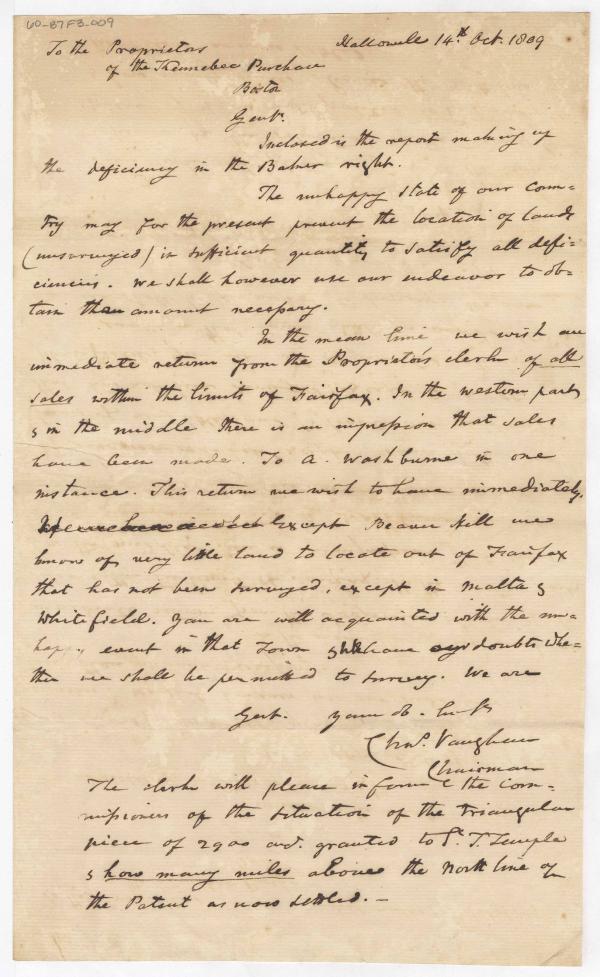 60-B7F3-009
Hallowell 14th. Oct. 1809
To the Proprietors
of the Kennebec Purchase
Boston
Gent.
Inclosed is the report making up
the deficiency in the Baker right.
The unhappy state of our coun=
try may for the present prevent the location of lands
(unsurveyed) in sufficient quantity to satisfy all defi=
ciencies. We shall however use our endeavor to ob=
tain the amount necessary.
In the mean time we wish an
immediate return from the Proprietors clerk of all
sales within the limits of Fairfax. In the western part
& in the middle there is an impression that sales
have been made. To A. Washburne in one
instance. This return we wish to have immediately.
Except Beaver Hill we
know of very little land to locate out of Fairfax
that has not been surveyed, except in Malta &
Whitefield. You are well acquainted with the un=
happy event in that Town & we have doubts whe=
ther we shall be permitted to survey. We are
Gent. your ob.
Chas. Vaughan
Chairman
The clerk will please inform the Com=
missioners of the situation of the triangular
piece of 2900 acs. granted to T. Temple
& how many miles above the North line of
the Patent as now settled. —